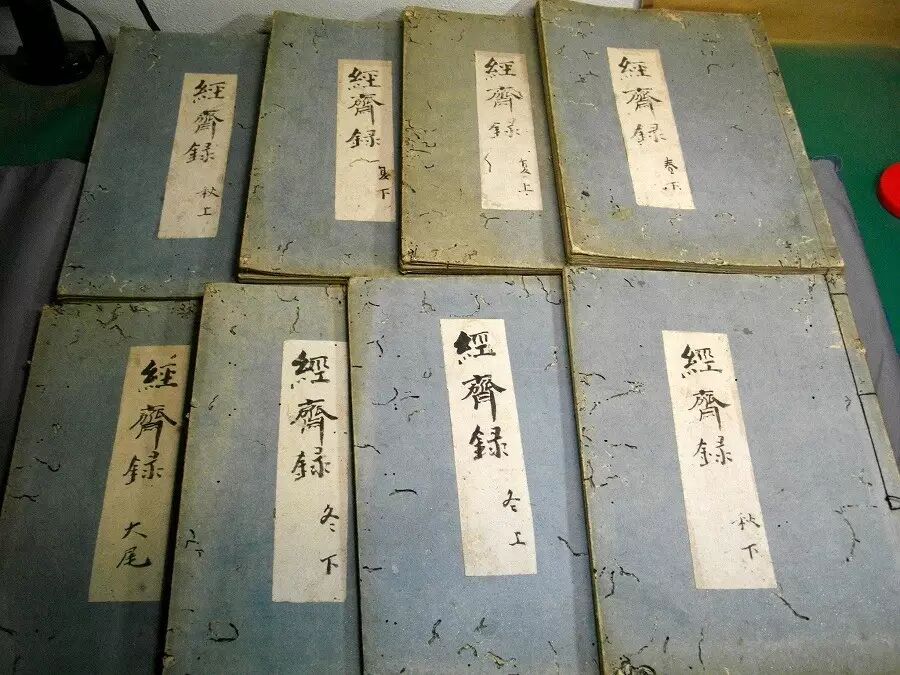 經齊録
春下
經齊録
夏上
經齊録
夏下
經齊録
秋上
經齊録
秋下
經齊録
冬上
經齊録
冬下
經齊録
大尾